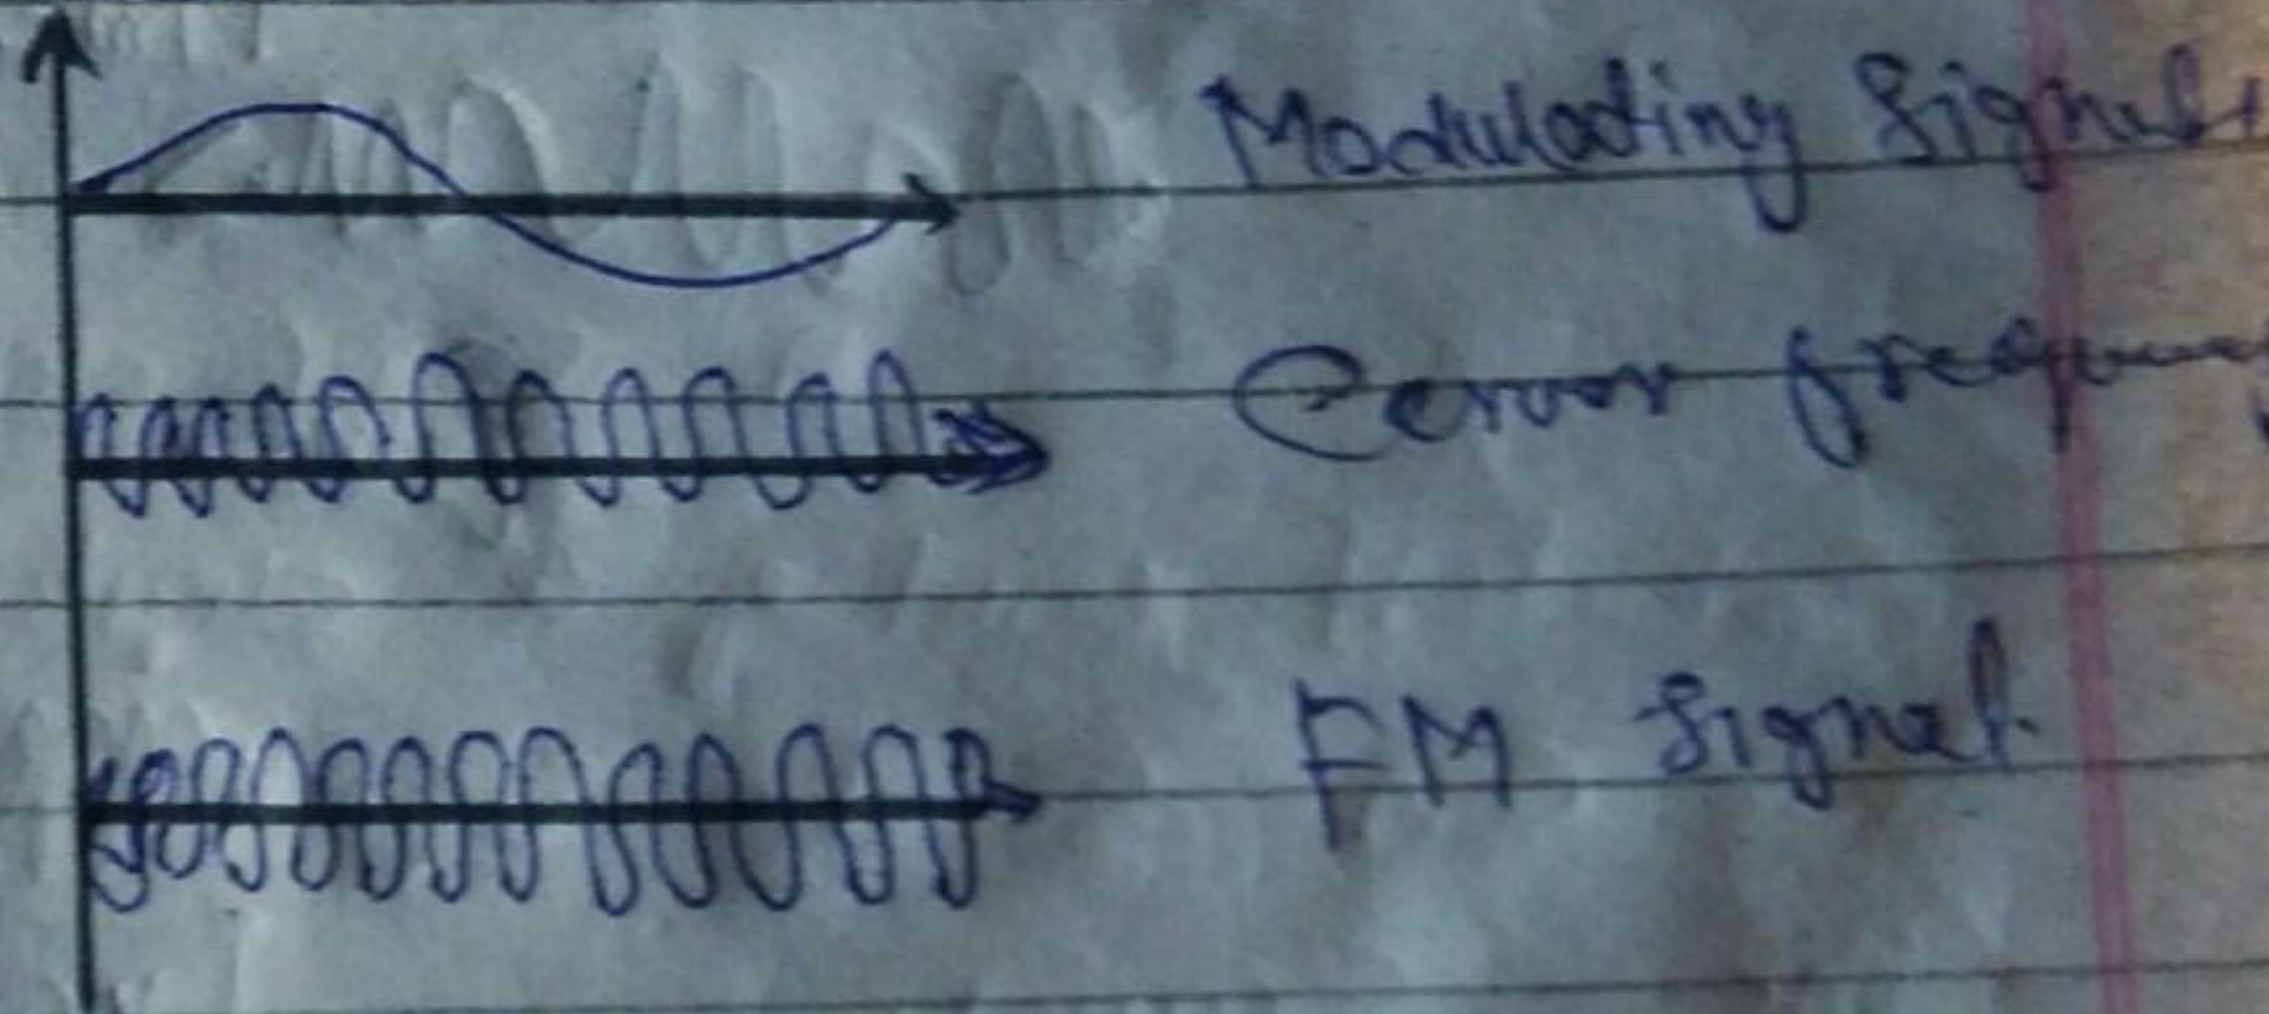 Modulating Signal
Carror frequen
FM Signal.